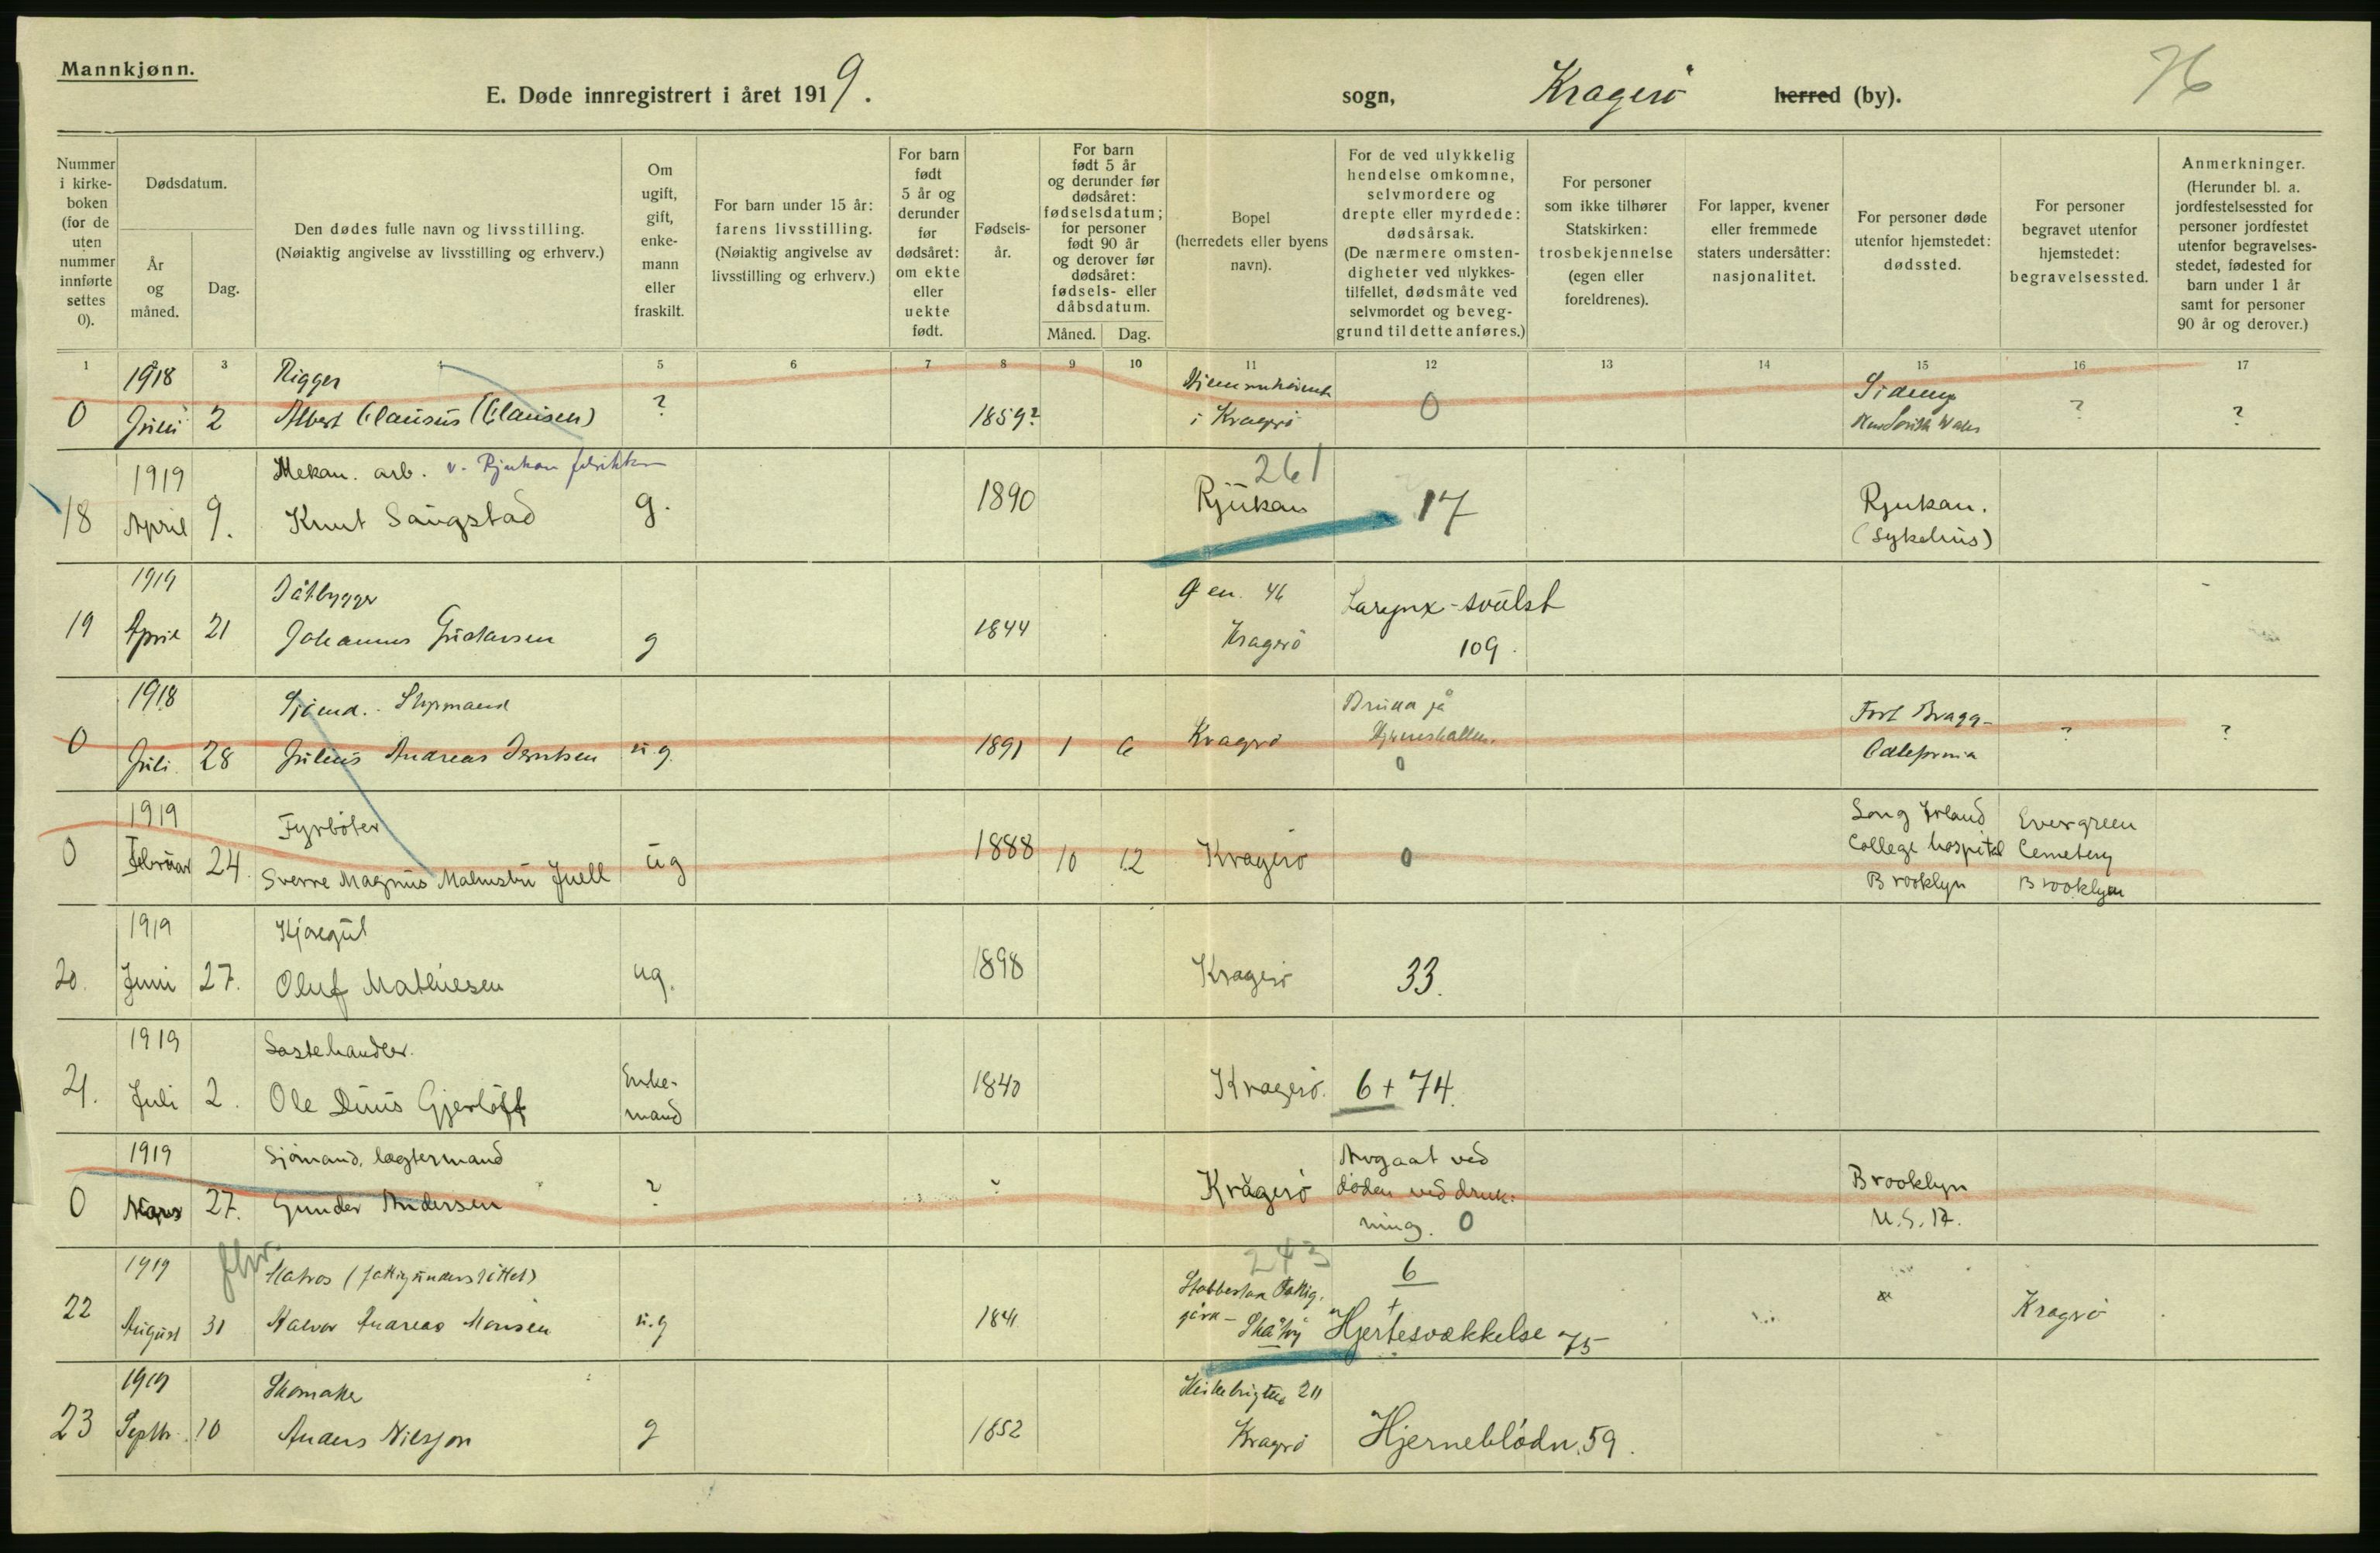 Mannkjønn.
E. Døde innregistrert i året 1919.
sogn, Kragerø herred (by).
76
Nummer i kirke-boken (for de uten nummer innførte settes 0).
Dødsdatum.
År og måned.
Dag.
Den dødes fulle navn og livsstilling.
(Nøiaktig angivelse av livsstilling og erhverv.)
Om ugift, gift, enke-mann eller fraskilt.
For barn under 15 år: farens livsstilling. (Nøiaktig angivelse av livsstilling og erhverv.)
For barn født 5 år og derunder før dødsåret: om ekte eller uekte født.
Fødsels-år.
For barn født 5 år og derunder før dødsåret: fødselsdatum; for personer født 90 år og derover før dødsåret: fødsels- eller dåbsdatum.
Måned.
Dag.
Bopel (herredets eller byens navn).
For de ved ulykkelig hendelse omkomne, selvmordere og drepte eller myrdede: dødsårsak. (De nærmere omsten-digheter ved ulykkes-tilfellet, dødsmåte ved selvmordet og beveg-grund til dette anføres.)
For personer som ikke tilhører Statskirken: trosbekjennelse (egen eller foreldrenes).
For lapper, kvener eller fremmede staters undersåtter: nasjonalitet.
For personer døde utenfor hjemstedet: dødssted.
For personer begravet utenfor hjemstedet: begravelsessted.
Anmerkninger. (Herunder bl. a. jordfestelsessted for personer jordfestet utenfor begravelses-stedet, fødested for barn under 1 år samt for personer 90 år og derover.)
1 2 3 4 5 6 7 8 9 10 11 12 13 14 15 16 17
1918 Rigger Sidney
0 Juni 2 Albert Clausus (Clausen) ? 1859? i Kragerø 0 New South Wales ? ?
1919 Mekan. arb. v. Rjukan fabrikker 261
18 April 9. Knut Saugstad g. 1890 Rjukan 17 Rjukan. (Sykehus)
1919 Båtbygger 46 Larynx-svulst
19 April 21 Johannes Gustavsen g 1844 Kragerø 109.
1918 Sjømd. Styrmand Fort Bragg-
0 Juli 28 Julius Andreas u.g. 1891 1 6 Kragerø 0 California ? ?
1919 Fyrbøter Long Island Evergreen
0 Februar 24. Sverre Magnus Juell ug 1888 10 12 Kragerø 0 College hospital Cemetery
Brooklyn Brooklyn
1919
20. Juni 27. Oluf Mathiesen ug. 1898 Kragerø 33.
1919
21. Juli 2. Ole Gjerløff Enke-mand 1840 Kragerø. 6 + 74.
1919 Sjømand, lægtermand Avgaat ved
0 Mars 27. Gunder Andersen ? ? Kragerø døden ved druk- Brooklyn
ning. 0 U.S.A.
1919 Matros (fattigunderstøttet) 243 6
22 August 31 Halvor Andreas Monsen u.g 1841 Skåtøy + Hjertesvækkelse 75 Kragerø
1919 Skomaker 211
23 Septbr. 10 Anders Nilsson g 1852 Kragerø Hjerneblødn. 59.